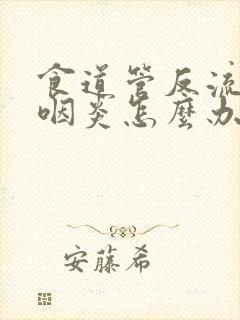 食道管反流
咽炎怎麼办
安藤希